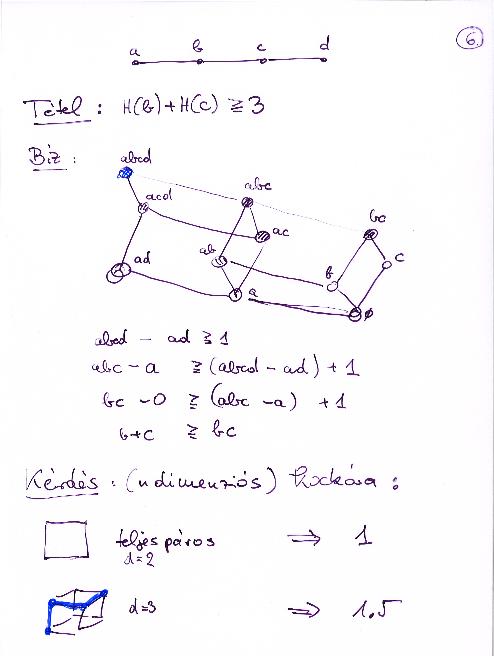 6.
a b c d
Tétel : H(b)+H(c) ≥ 3
Biz :
abcd
acd
abc
ac
bc
c
ad
ab
b
a
ø
abcd - ad ≥ 1
abc - a ≥ (abcd - ad) + 1
bc - 0 ≥ (abc - a) + 1
b+c ≥ bc
Kérdés : (n dimenziós) kockára :
teljes páros ⇒ 1
d=2
d=3 ⇒ 1.5